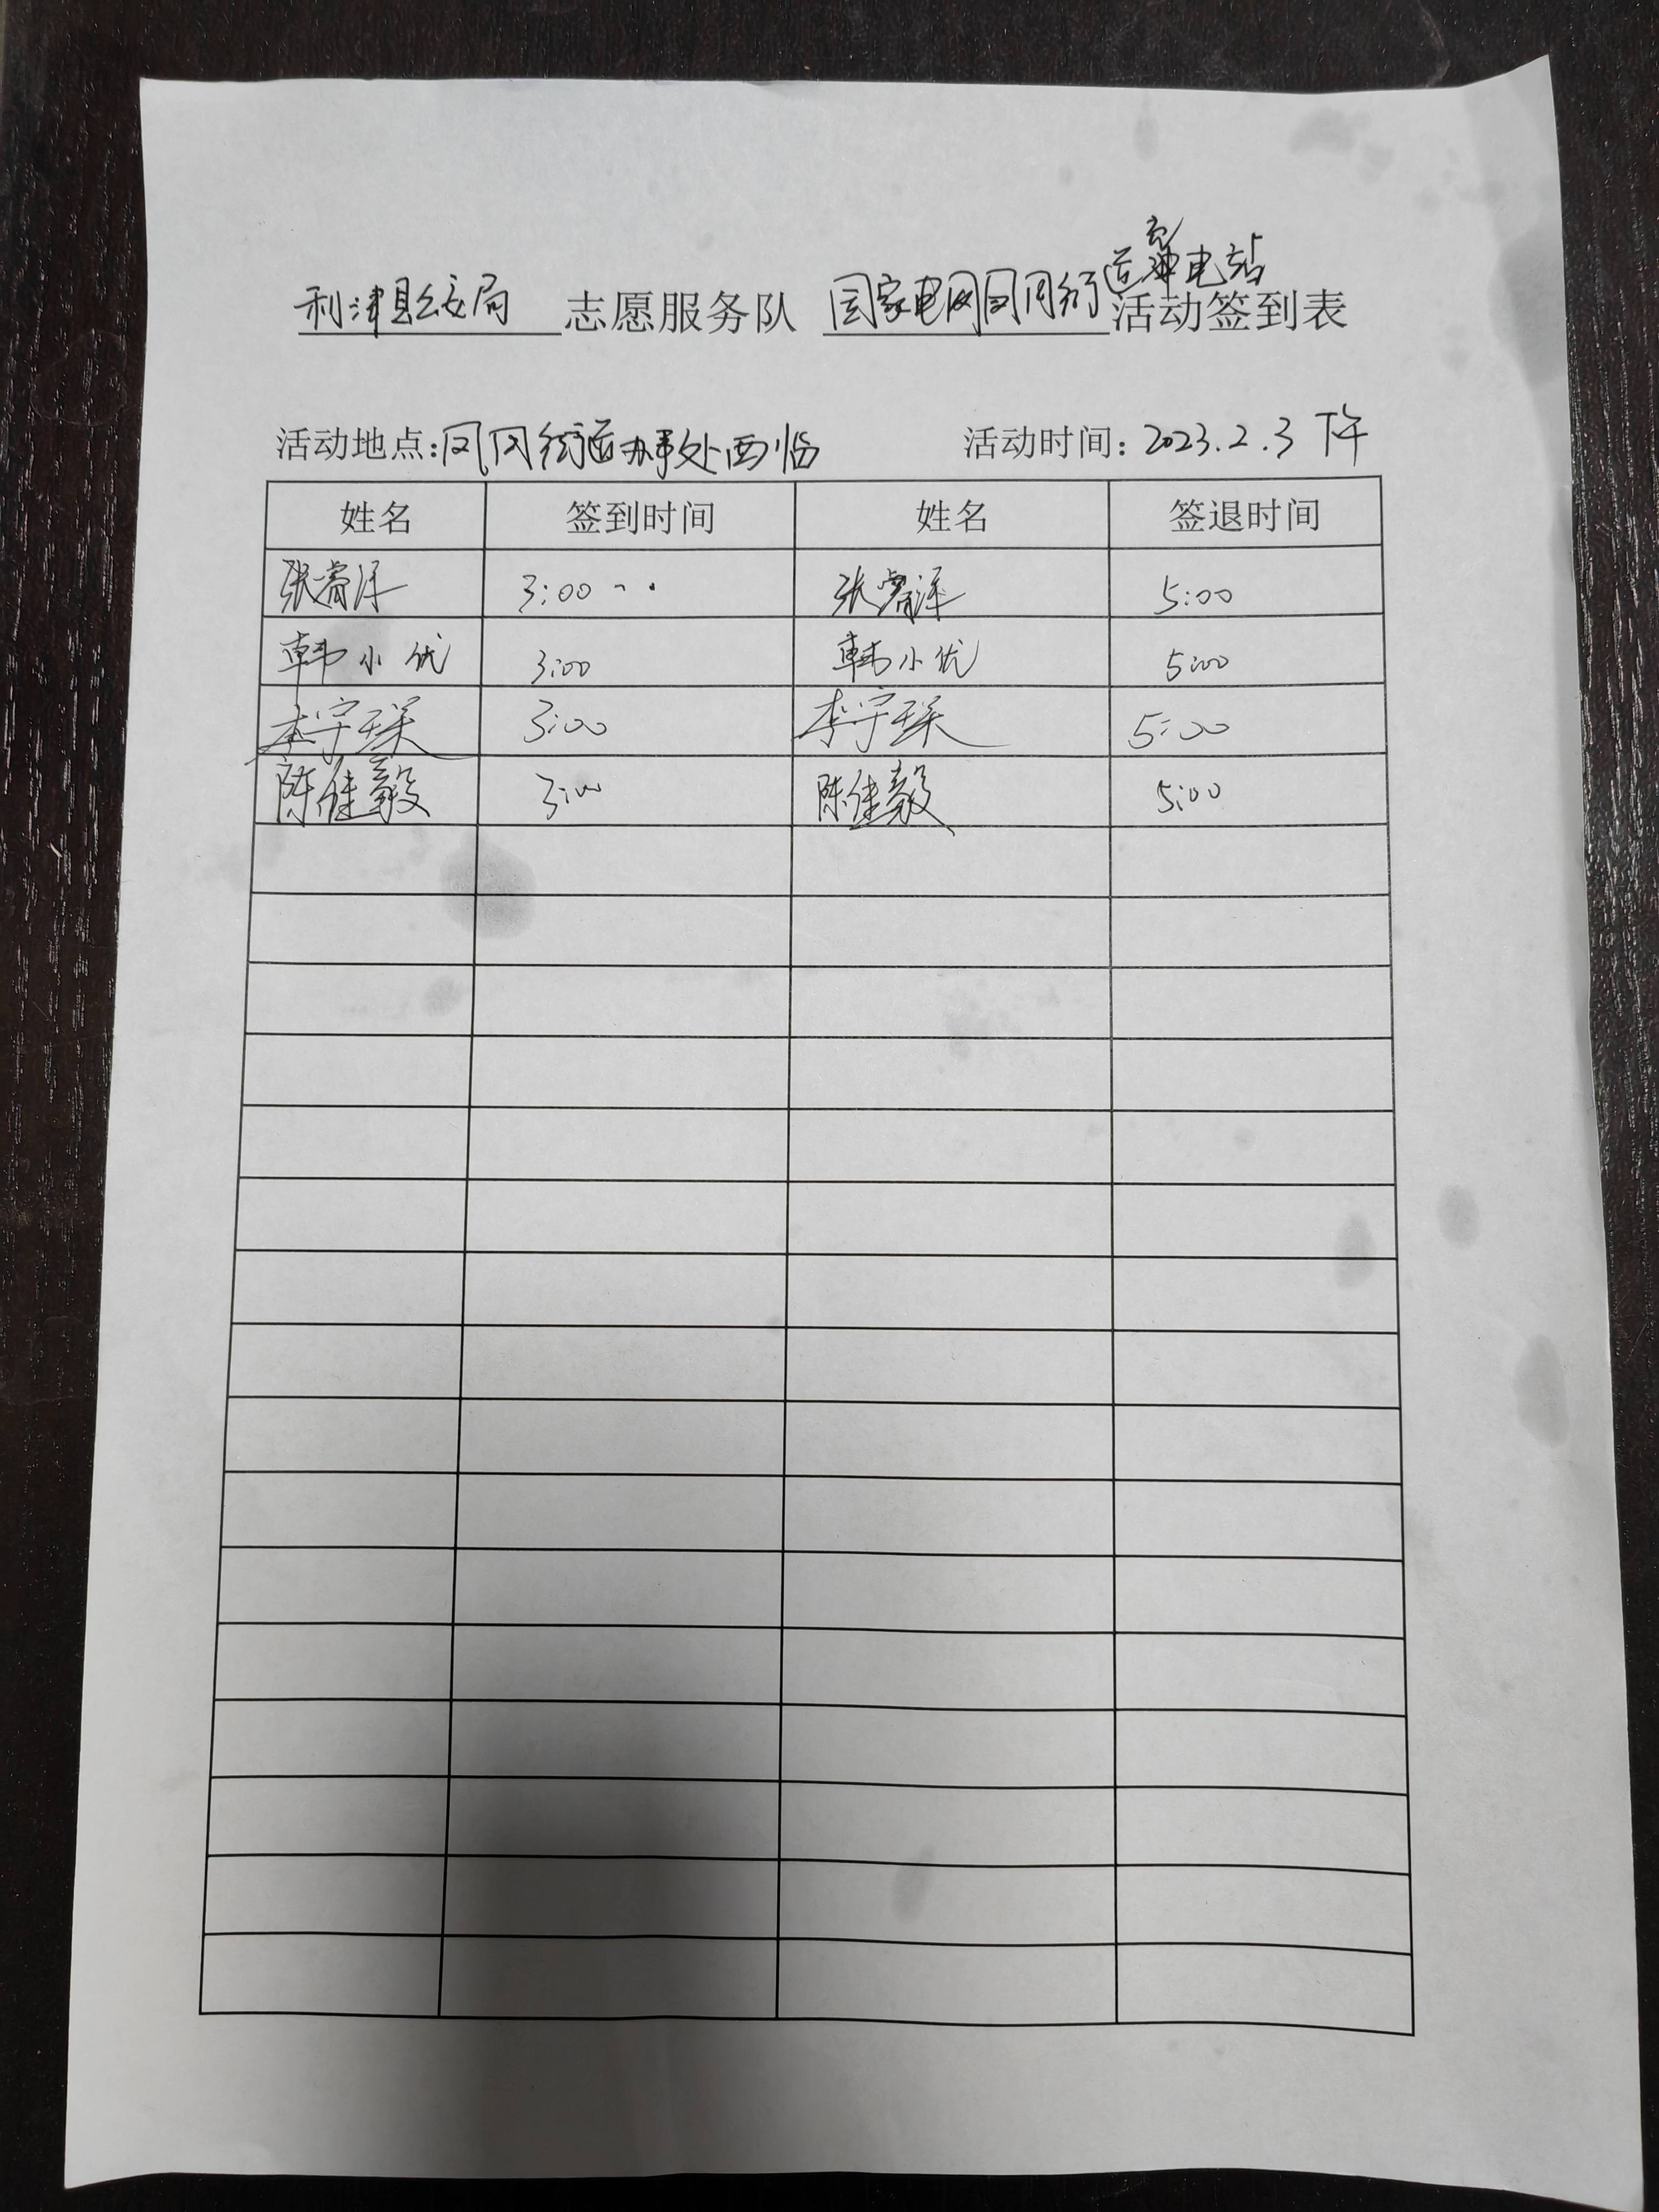 利津县公安局 志愿服务队 国家电网凤凰街道充电站活动签到表
活动地点:凤凰街道办事处西临 活动时间:2023.2.3 下午
姓名 签到时间 姓名 签退时间
张睿泽 3:00 张睿泽 5:00
韩小优 3:00 韩小优 5:00
李宇琛 3:00 李宇琛 5:00
陈佳毅 3:00 陈佳毅 5:00